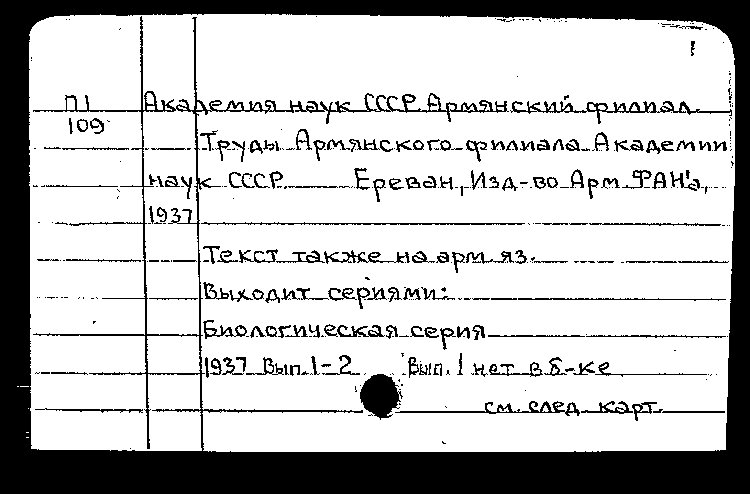 1
П1 Академия наук СССР. Армянский филиал.
109
Труды Армянского филиала Академии
наук СССР. Ереван, Изд-во Арм. ФАН'а,
1937
Текст также на арм. яз.
Выходит сериями:
Биологическая серия
1937 Вып. 1-2 Вып. 1 нет в б-ке
см. след. карт.